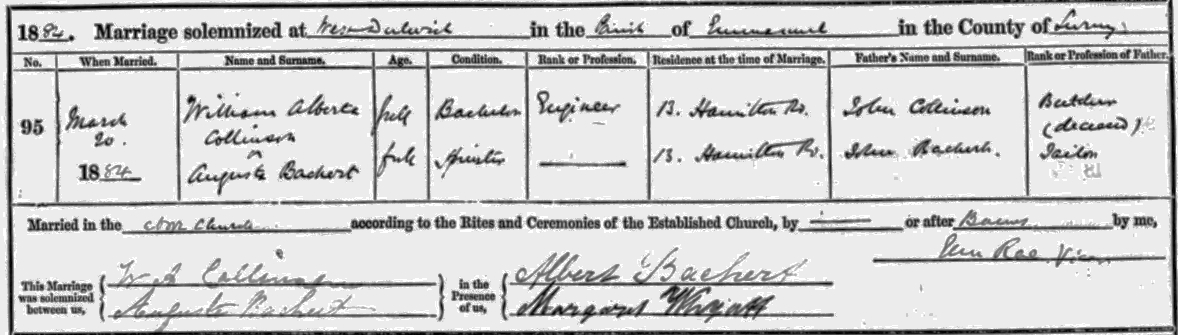 1884. Marriage solemnized at West Dulwich in the Parish of Emmanuel in the County of Surrey
No. When Married. Name and Surname. Age. Condition. Rank or Profession. Residence at the time of Marriage. Father's Name and Surname. Rank or Profession of Father.
95 March 20. 1884 William Alberta Collinson full Bachelor Engineer 13. Hamilton Rd. John Collinson Butcher (deceased)
Auguste Bachert full Spinster 13. Hamilton Rd. John Bachert. Tailor
Married in the Church according to the Rites and Ceremonies of the Established Church, by or after Banns by me,
Rae Vicar
This Marriage was solemnized between us, W A Collinson Auguste Bachert in the Presence of us, Albert Bachert Margaret Whyatt